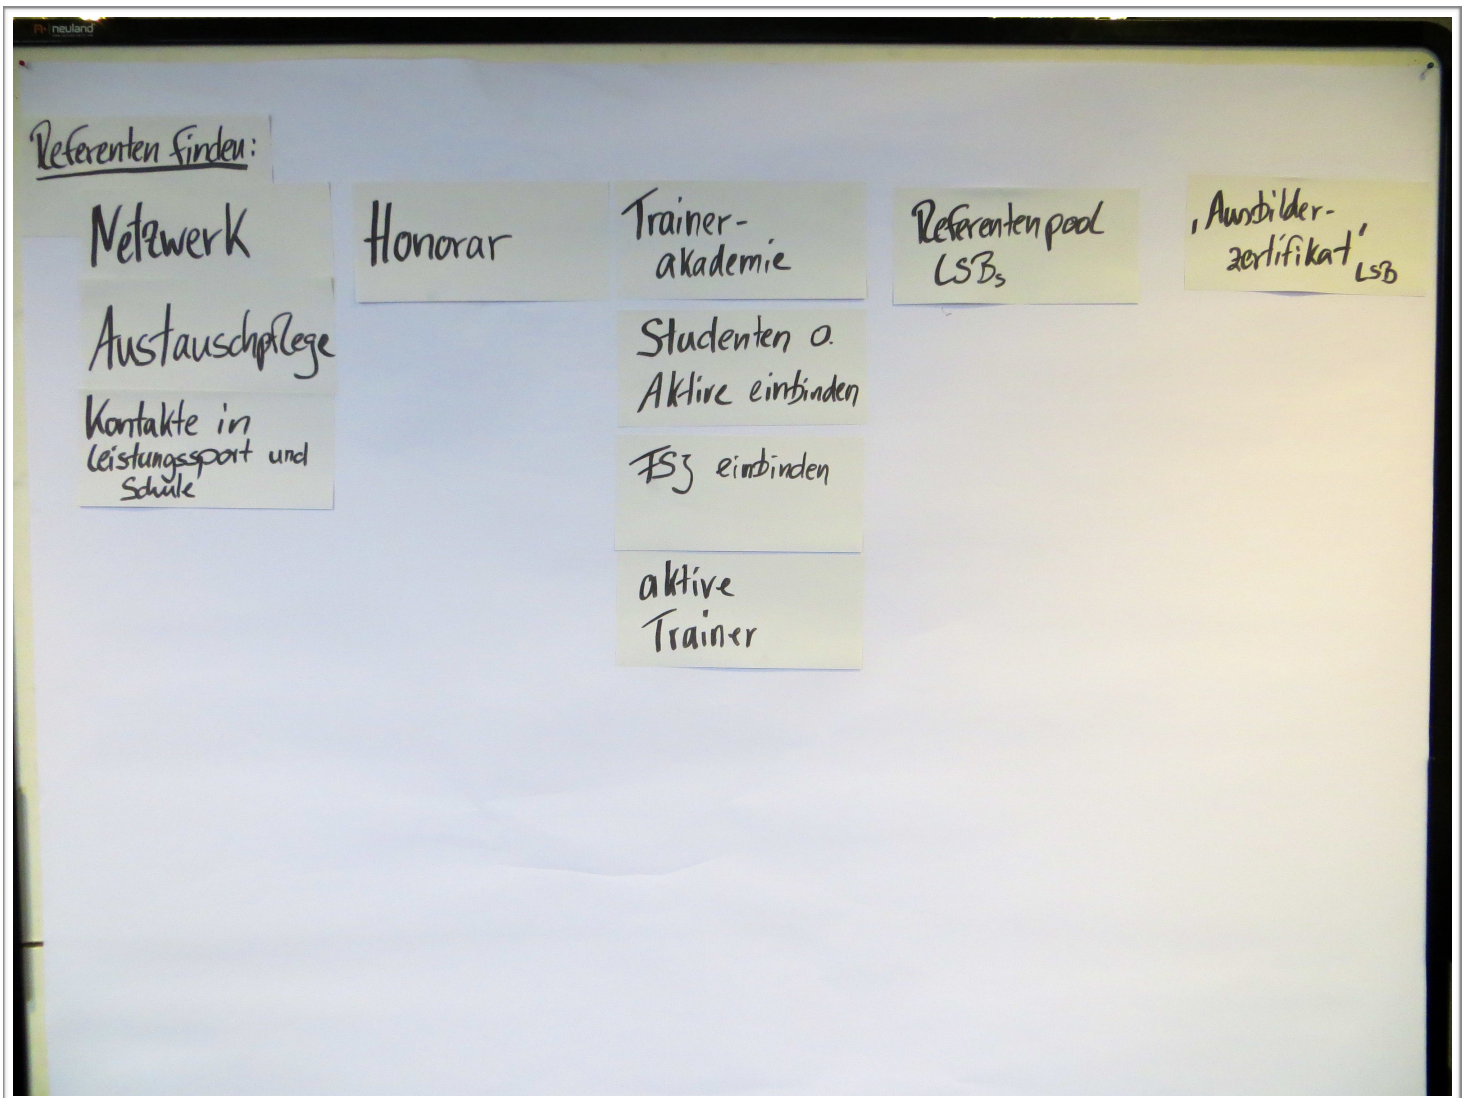 neuland
Referenten finden:
Netzwerk
Austauschpflege
Kontakte in
Leistungssport und
Schule
Honorar
Trainer-
akademie
Studenten o.
Aktive einbinden
FSJ einbinden
aktive
Trainer
Referentenpool
LSBs
'Ausbilder-
zertifikat' LSB